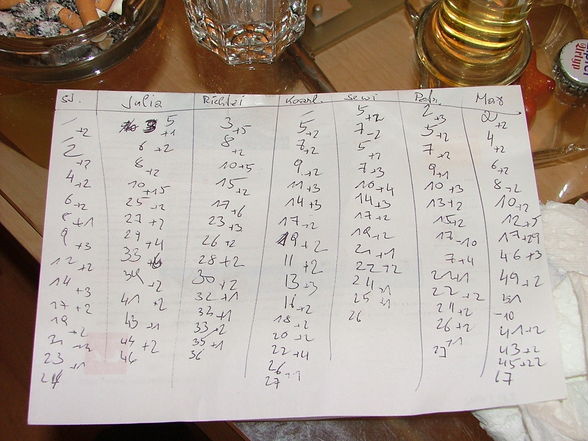 Julia Richtzi Sewi Mar
+2 5 3 +5 5 +2 5 +2 2 +3 2 +2
2 +1 8 +2 7 +2 7 -2 5 +2 4 +2
+2 6 +2 10 +5 9 +2 5 +2 7 +2 6 +2
4 +2 8 +2 15 +2 11 +3 7 +3 9 +1 8 +2
6 +2 10 +15 17 +6 14 +3 10 +4 10 +3 10 +2
8 +1 25 +2 23 +3 17 -2 14 +3 13 +2 12 +5
9 +3 27 +2 26 +2 19 +2 17 +2 15 +2 17 +29
12 +2 29 +4 28 +2 11 +2 19 +2 17 -10 46 +3
14 +3 33 30 +2 13 +3 21 +1 7 +4 49 +2
17 +2 41 +2 32 +1 16 +2 22 +2 21 +1 51
19 +2 43 +1 33 +2 18 +2 24 +1 22 +2 -10
21 44 +2 35 +1 20 +2 25 +1 24 +2 41 +2
23 +1 46 36 22 +4 26 26 +1 43 +2
24 26 +1 27 45 +22
27 67